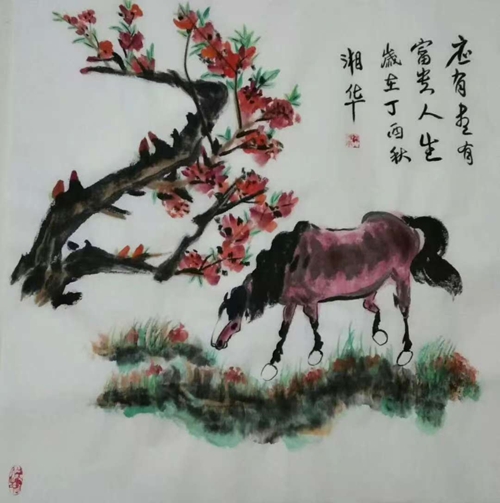 应有尽有
富贵人生
岁在丁酉秋
湘华